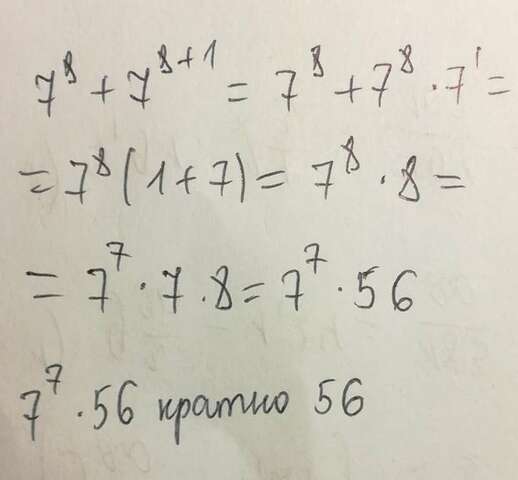 7⁸ + 7⁸⁺¹ = 7⁸ + 7⁸ · 7¹ =
= 7⁸ (1 + 7) = 7⁸ · 8 =
= 7⁷ · 7 · 8 = 7⁷ · 56
7⁷ · 56 кратно 56